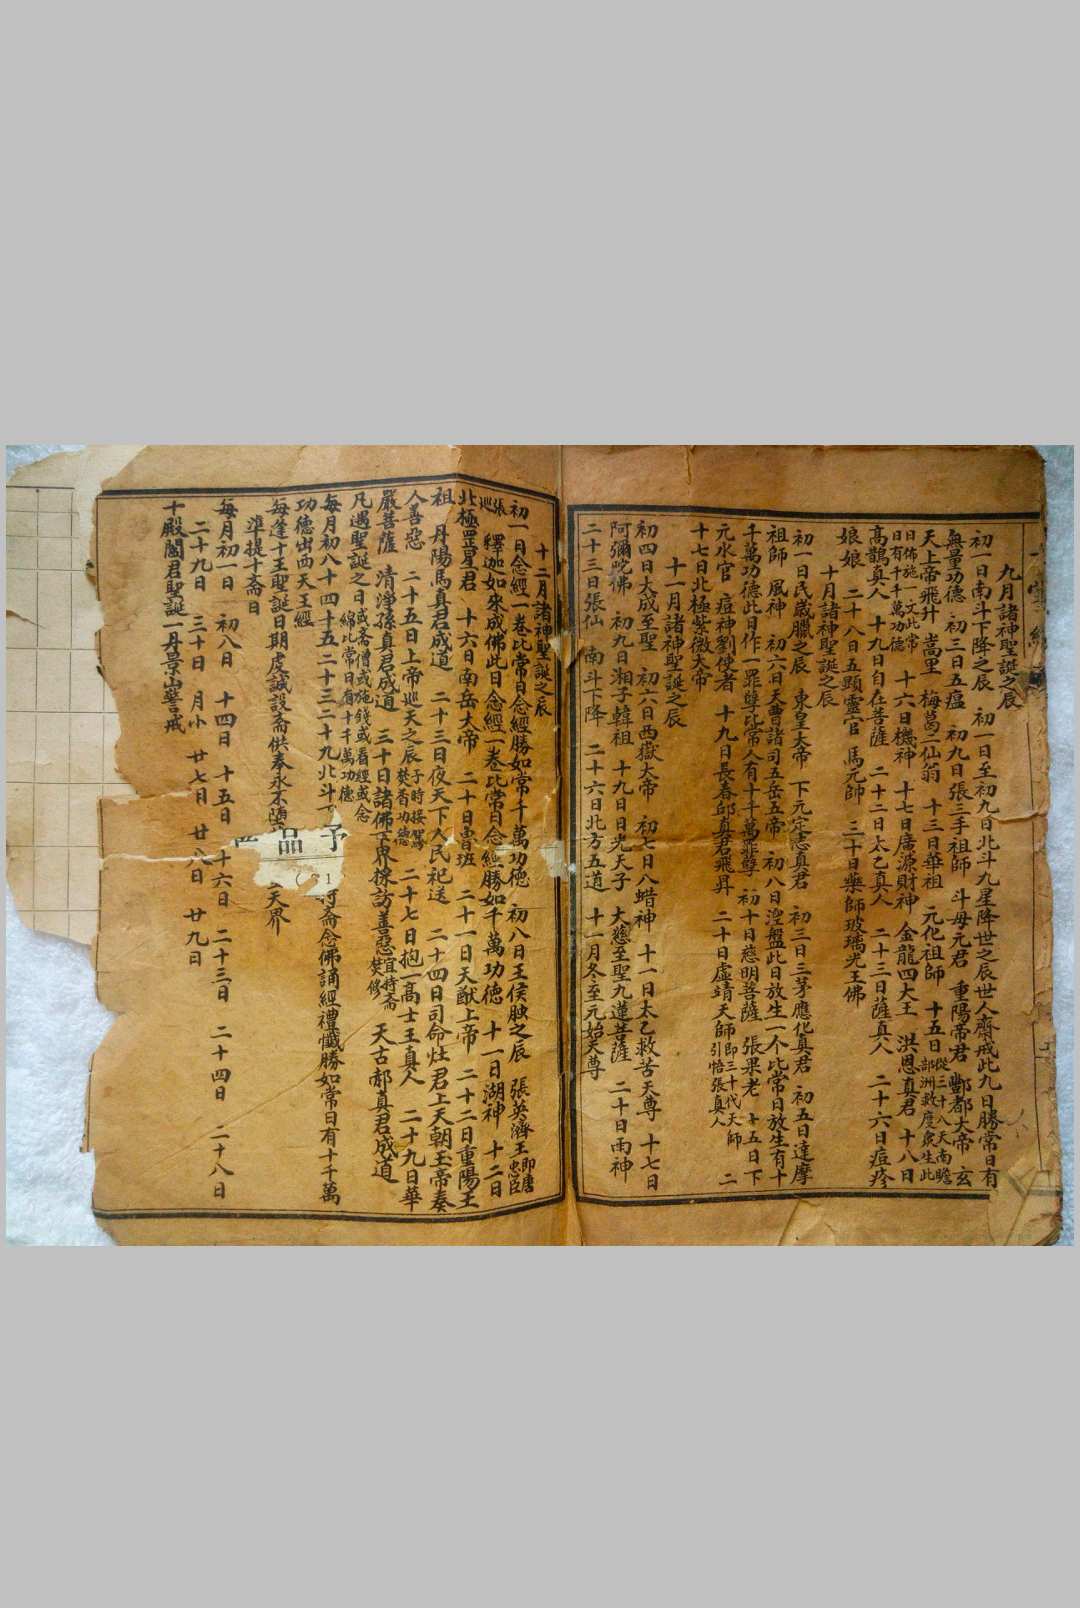 九月諸神聖誕之辰
初一日南斗下降之辰 初一日至初九日北斗九星降世之辰世人齋戒此九日勝常日有
無量功德 初三日五瘟 初九日張三手祖師 斗母元君 重陽帝君 酆都大帝 玄
天上帝飛升 嵩里 梅葛二仙翁 十三日華祖 元化祖師 十五日從三十八天南瞻部洲教度衆生此
日佛施一文比常日有千千萬功德 十六日機神 十七日廣源財神 金龍四大王 洪恩真君 十八日
高鵲真人 十九日自在菩薩 二十二日太乙真人 二十三日薩真人 二十六日痘疹
娘娘 二十八日五顯靈官 馬元帥 三十日藥師玻璃光王佛
十月諸神聖誕之辰
初一日民歲臘之辰 東皇大帝 下元定志真君 初三日三茅應化真君 初五日達摩
祖師 風神 初六日天曹諸司五岳五帝 初八日涅盤此日放生一个比常日放生有十
千萬功德此日作一罪孽比常人有十千萬罪孽 初十日慈明菩薩 張果老 十五日下
元水官 痘神劉使者 十九日長春邱真君飛昇 二十日虛靖天師即三十代天師引悟張真人 二
十七日北極紫微大帝
十一月諸神聖誕之辰
初四日大成至聖 初六日西嶽大帝 初七日八蜡神 十一日太乙救苦天尊 十七日
阿彌陀佛 初九日湘子韓祖 十九日日光天子 大慈至聖九蓮菩薩 二十日雨神
二十三日張仙 南斗下降 二十六日北方五道 十一月冬至元始天尊
十二月諸神聖誕之辰
初一日念經一卷比常日念經勝如常千萬功德 初八日王侯腊之辰 張英濟王即唐忠臣
張巡 釋迦如來成佛此日念經一卷比常日念經勝如千萬功德 十一日湖神 十二日
北極罡星君 十六日南岳大帝 二十日魯班 二十一日天猷上帝 二十二日重陽王
祖 丹陽馬真君成道 二十三日夜天下人民祀送 二十四日司命灶君上天朝玉帝奏
人善惡 二十五日上帝巡天之辰子時接駕焚香功德 二十七日抱一高士王真人 二十九日華
嚴菩薩 清淨孫真君成道 三十日諸佛下界採訪善惡宜持齋焚修 天古郝真君成道
凡遇聖誕之日或齋僧或施錢或看經或念線比常日有十千萬功德
每月初八十四十五二十三二十九北斗下 齋念佛誦經禮懺勝如常日有十千萬
功德出西天王經
每逢十王聖誕日期虔誠設齋供奉永不墮 天界
予 品
準提十齋日
每月初一日 初八日 十四日 十五日 十六日 二十三日 二十四日 二十八日
二十九日 三十日 月小 廿七日 廿八日 廿九日
十殿閻君聖誕一丹景山警戒